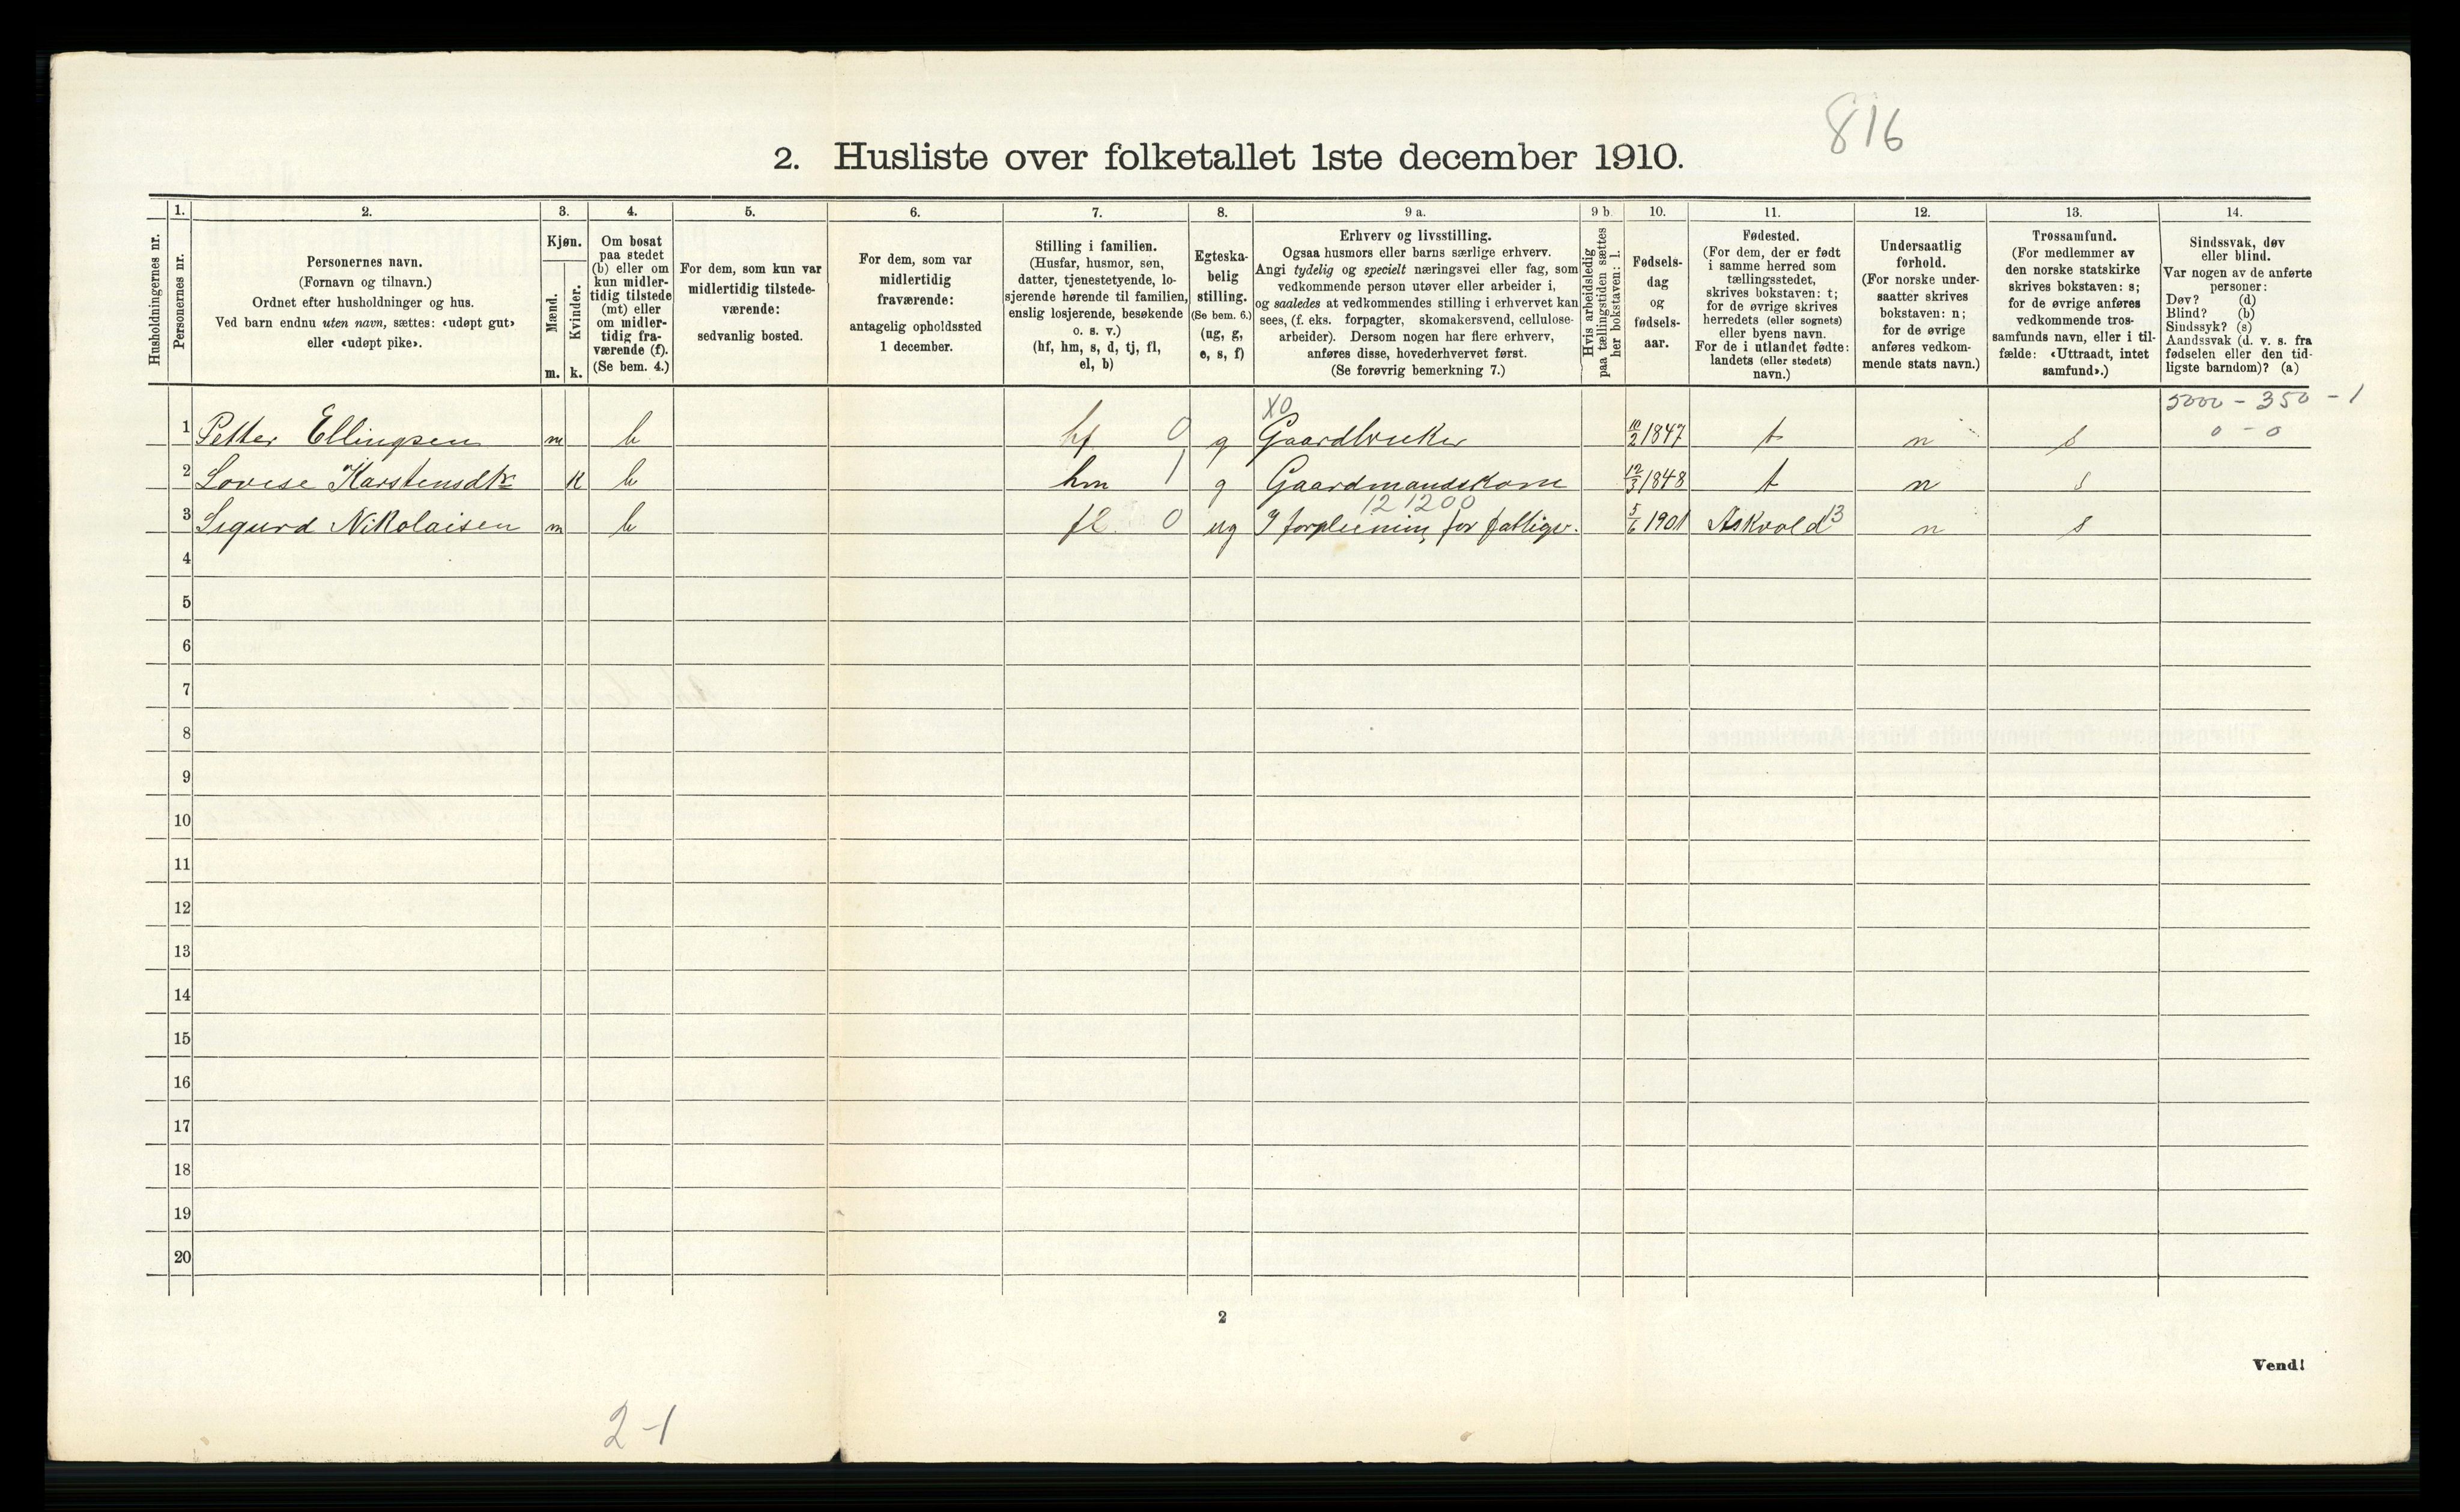 816
2. Husliste over folketallet 1ste december 1910.
Husholdningernes nr.
1.
Personernes nr.
2.
Personernes navn.
(Fornavn og tilnavn.)
Ordnet efter husholdninger og hus.
Ved barn endnu uten navn, sættes: «udøpt gut»
eller «udøpt pike».
3.
Kjøn.
Mænd.
Kvinder.
m. k.
4.
Om bosat
paa stedet
(b) eller om
kun midler-
tidig tilstede
(mt) eller
om midler-
tidig fra-
værende (f).
(Se bem. 4.)
5.
For dem, som kun var
midlertidig tilstede-
værende:
sedvanlig bosted.
6.
For dem, som var
midlertidig
fraværende:
antagelig opholdssted
1 december.
7.
Stilling i familien.
(Husfar, husmor, søn,
datter, tjenestetyende, lo-
sjerende hørende til familien,
enslig losjerende, besøkende
o. s. v.)
(hf, hm, s, d, tj, fl,
el, b)
8.
Egteska-
belig
stilling.
(Se bem. 6.)
(ug, g,
e, s, f)
9 a.
Erhverv og livsstilling.
Ogsaa husmors eller barns særlige erhverv.
Angi tydelig og specielt næringsvei eller fag, som
vedkommende person utøver eller arbeider i,
og saaledes at vedkommendes stilling i erhvervet kan
sees, (f. eks. forpagter, skomakersvend, cellulose-
arbeider). Dersom nogen har flere erhverv,
anføres disse, hovederhvervet først.
(Se forøvrig bemerkning 7.)
9 b.
Hvis arbeidsledig
paa tællingstiden sættes
her bokstaven: l.
10.
Fødsels-
dag
og
fødsels-
aar.
11.
Fødested.
(For dem, der er født
i samme herred som
tællingsstedet,
skrives bokstaven: t;
for de øvrige skrives
herredets (eller sognets)
eller byens navn.
For de i utlandet fødte:
landets (eller stedets)
navn.)
12.
Undersaatlig
forhold.
(For norske under-
saatter skrives
bokstaven: n;
for de øvrige
anføres vedkom-
mende stats navn.)
13.
Trossamfund.
(For medlemmer av
den norske statskirke
skrives bokstaven: s;
for de øvrige anføres
vedkommende tros-
samfunds navn, eller i til-
fælde: «Uttraadt, intet
samfund».)
14.
Sindssvak, døv
eller blind.
Var nogen av de anførte
personer:
Døv? (d)
Blind? (b)
Sindssyk? (s)
Aandssvak (d. v. s. fra
fødselen eller den tid-
ligste barndom)? (a)
X0 5000 - 350 - 1
1 Petter Ellingsen m b hf 0 g Gaardbruker 10/2 1847 t n s 0 - 0
2 Lovise Karstensdtr K b hm 1 g Gaardmandskone 12/3 1848 t n s
12 1200
3 Sigurd Nikolaisen m b fl 0 ug I forpleining for fattigv. 5/6 1901 Askvold 13 n s
4
5
6
7
8
9
10
11
12
13
14
15
16
17
18
19
20
2
Vend!
2-1